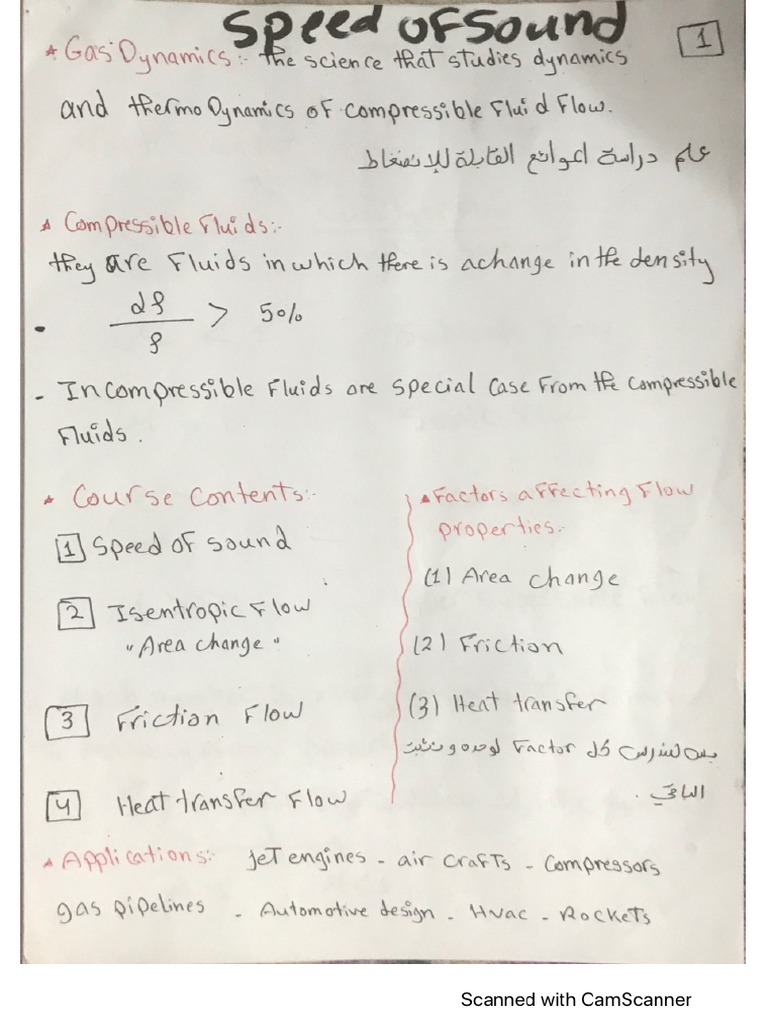 Speed of Sound
1
* Gas Dynamics:- The science that studies dynamics
and thermo Dynamics of compressible Fluid Flow.
علم دراسة اعوائع القابلة للإنضغاط
* Compressible Fluids:-
they are Fluids in which there is a change in the density
• dρ/ρ > 5%
- Incompressible Fluids are special case From the compressible
Fluids.
* Course Contents:-
1 Speed of sound
2 Isentropic Flow
"Area change"
3 Friction Flow
4 Heat transfer Flow
* Factors affecting Flow
properties:-
(1) Area change
(2) Friction
(3) Heat transfer
بس لندرس كل Factor لوحده ونثبت
الباقي .
* Applications:- Jet engines - air crafts - Compressors
gas pipelines - Automotive design - Hvac - Rockets
Scanned with CamScanner